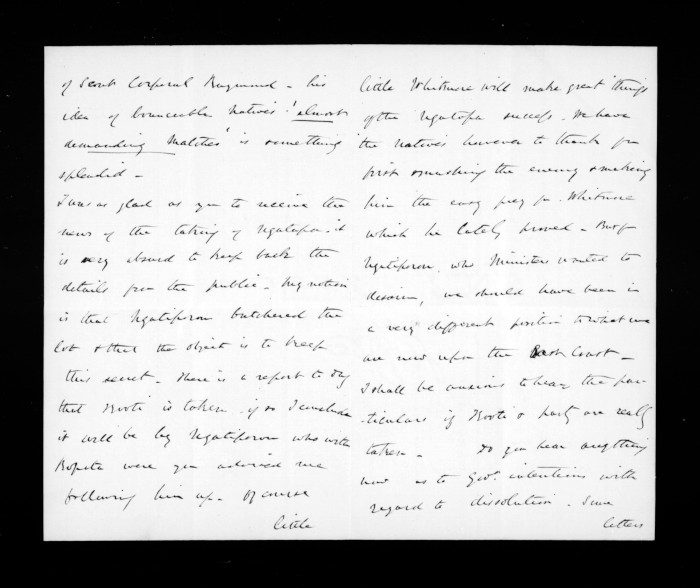 of Scout Corporal Raymond – his
idea of bounceable Natives 'almost
demanding Matches' is something
splendid –
I was as glad as you to receive the
news of the taking of Ngatapa. it
is very absurd to keep back the
details from the public – My notion
is that Ngatiporou butchered the
lot & that the object is to keep
this secret – There is a report to day
that Kooti is taken. if so I conclude
it will be by Ngatiporou who with
Ropata were you advised me
following him up – Of course
little
little Whitmore will make great things
of the Ngatapa success. We have
the Natives however to thank for
first smashing the enemy & making
him the easy prey for Whitmore
which he lately proved – But for
Ngatiporou, who Ministers wanted to
disarm, we should have been in
a very different position to what we
are now upon the East Coast –
I shall be anxious to hear the par-
-ticulars if Kooti & party are really
taken – Do you hear anything
now as to Govr. intentions with
regard to dissolution. Some
letters